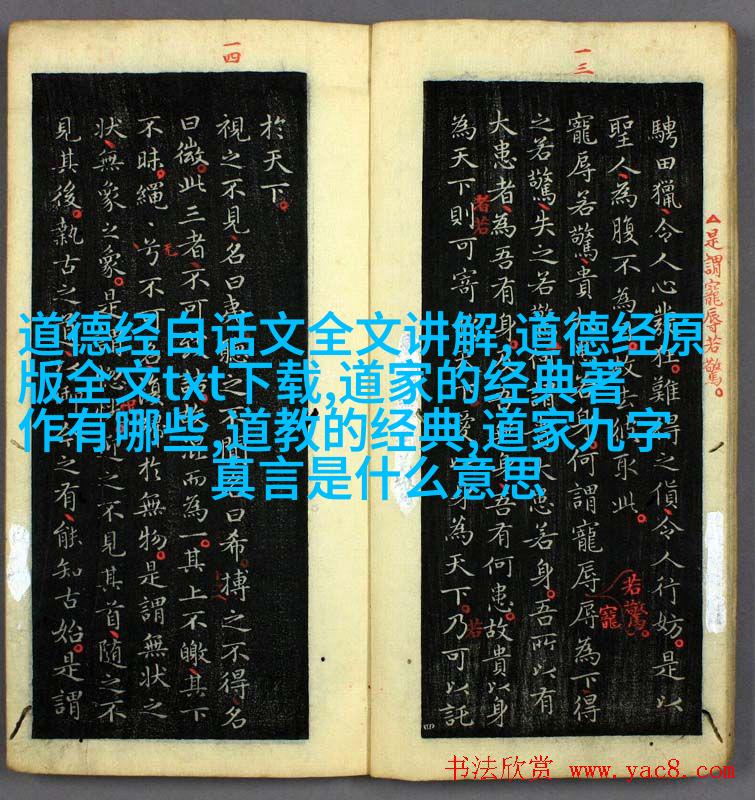 一三
騁田獵令人心狂難得之貨令人行妨是以
聖人為腹不為故去彼取此
寵辱若驚貴身何謂寵辱辱為下得
之若驚失之若驚大患若身吾所以有
大患者為吾有身吾有何患故貴以身
為天下則可寄愛身為天下乃可以託
△是謂寵辱若驚
者若
若驚
寵
若
一四
於天下
視之不見名曰夷聽之不聞曰希搏之不得名
曰微此三者不可致而為一其上不皦其下
不昧繩〻兮不可名復於無物是謂無狀之
狀無象之象是之不見其首隨之不
見其後執古之道之有能知古始是謂
道德经白话文全文讲解,道德经原
版全文txt下载,道家的经典著
作有哪些,道教的经典,道家九字
真言是什么意思
书法欣赏 www.yac8.com